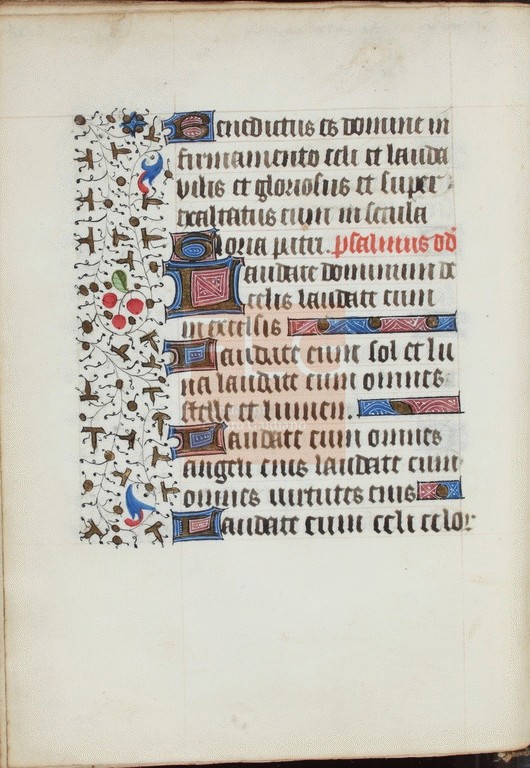 Benedictus es domine in
firmamento celi et lauda
bilis et gloriosus et super
exaltatus eum in secula
Gloria patri. psalmus dd
Laudate dominum de
celis laudate eum
in excelsis
Laudate eum sol et lu
na laudate eum omnes
stelle et lumen.
Laudate eum omnes
angeli eius laudate eum
omnes uirtutes eius
Laudate eum celi celor